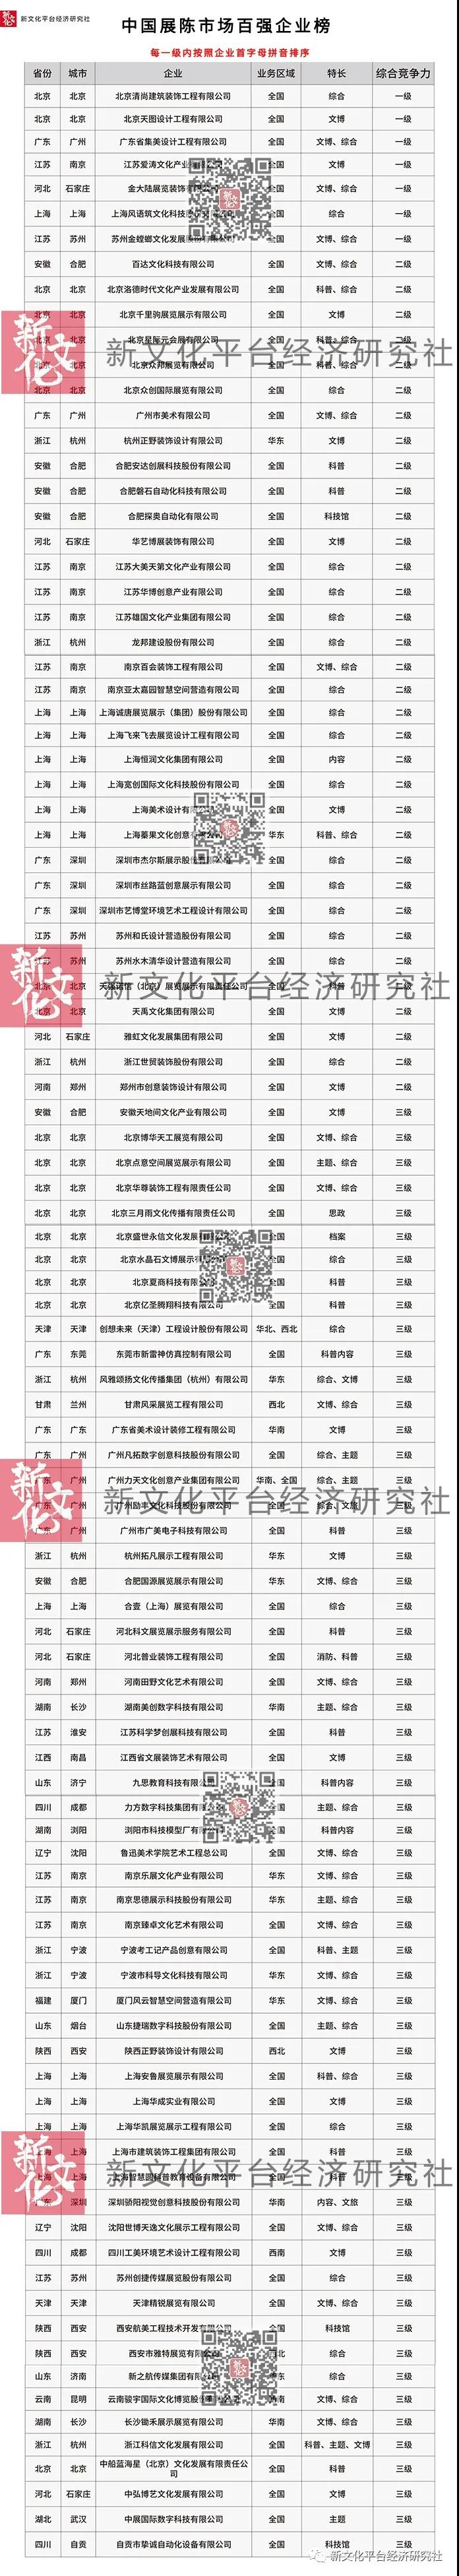 新文化平台经济研究社
中国展陈市场百强企业榜
每一级内按照企业首字母拼音排序
省份 城市 企业 业务区域 特长 综合竞争力
北京 北京 北京清尚建筑装饰工程有限公司 全国 综合 一级
北京 北京 北京天图设计工程有限公司 全国 文博 一级
广东 广州 广东省集美设计工程有限公司 全国 文博、综合 一级
江苏 南京 江苏爱涛文化产业有限公司 全国 文博 一级
河北 石家庄 金大陆展览装饰有限公司 全国 文博、综合 一级
上海 上海 上海风语筑文化科技 全国 综合 一级
江苏 苏州 苏州金螳螂文化发展 全国 文博、综合 一级
安徽 合肥 百达文化科技有限公司 全国 文博、综合 二级
北京 北京 北京洛德时代文化产业发展有限公司 全国 科普、综合 二级
北京 北京 北京千里驹展览展示有限公司 全国 文博 二级
北京 北京 北京星际元会展有限公司 全国 科普、综合 二级
北京 北京 北京众邦展览有限公司 全国 科普、综合 二级
北京 北京 北京众创国际展览有限公司 全国 综合 二级
广东 广州 广州市美术有限公司 全国 文博、综合 二级
浙江 杭州 杭州正野装饰设计有限公司 华东 文博 二级
安徽 合肥 合肥安达创展科技股份有限公司 全国 科普 二级
安徽 合肥 合肥磐石自动化科技有限公司 全国 科普 二级
安徽 合肥 合肥探奥自动化有限公司 全国 科技馆 二级
河北 石家庄 华艺博展装饰有限公司 全国 文博 二级
江苏 南京 江苏大美天第文化产业有限公司 全国 综合 二级
江苏 南京 江苏华博创意产业有限公司 全国 综合 二级
江苏 南京 江苏雄国文化产业集团有限公司 全国 综合 二级
浙江 杭州 龙邦建设股份有限公司 全国 综合 二级
江苏 南京 南京百会装饰工程有限公司 全国 文博、综合 二级
江苏 南京 南京亚太嘉园智慧空间营造有限公司 全国 综合 二级
上海 上海 上海诚唐展览展示（集团）股份有限公司 全国 综合 二级
上海 上海 上海飞来飞去展览设计工程有限公司 全国 综合 二级
上海 上海 上海恒润文化集团有限公司 全国 内容 二级
上海 上海 上海宽创国际文化科技股份有限公司 全国 综合 二级
上海 上海 上海美术设计有限公司 全国 文博 二级
上海 上海 上海蓁果文化创意有限公司 华东 科普、综合 二级
广东 深圳 深圳市杰尔斯展示股份有限公司 全国 综合 二级
广东 深圳 深圳市丝路蓝创意展示有限公司 全国 综合 二级
广东 深圳 深圳市艺博堂环境艺术工程设计有限公司 全国 综合 二级
江苏 苏州 苏州和氏设计营造股份有限公司 全国 综合 二级
江苏 苏州 苏州水木清华设计营造有限公司 全国 综合 二级
北京 北京 天强诺信（北京）展览展示有限责任公司 全国 科普 二级
北京 北京 天禹文化集团有限公司 全国 文博 二级
河北 石家庄 雅虹文化发展集团有限公司 全国 文博 二级
浙江 杭州 浙江世贸装饰股份有限公司 全国 综合 二级
河南 郑州 郑州市创意装饰设计有限公司 全国 文博 二级
安徽 合肥 安徽天地间文化产业有限公司 全国 文博 三级
北京 北京 北京博华天工展览有限公司 全国 文博、综合 三级
北京 北京 北京点意空间展览展示有限公司 全国 主题、综合 三级
北京 北京 北京华尊装饰工程有限责任公司 全国 文博、综合 三级
北京 北京 北京三月雨文化传播有限责任公司 全国 思政 三级
北京 北京 北京盛世永信文化发展有限公司 全国 档案 三级
北京 北京 北京水晶石文博展示有限公司 全国 综合 三级
北京 北京 北京夏商科技有限公司 全国 科普 三级
北京 北京 北京亿圣腾翔科技有限公司 全国 科普 三级
天津 天津 创想未来（天津）工程设计股份有限公司 华北、西北 综合 三级
广东 东莞 东莞市新雷神仿真控制有限公司 全国 科普内容 三级
浙江 杭州 风雅颂扬文化传播集团（杭州）有限公司 华东 综合、文博 三级
甘肃 兰州 甘肃风采展览工程有限公司 西北 文博、综合 三级
广东 广东 广东省美术设计装修工程有限公司 华南 文博 三级
广东 广州 广州凡拓数字创意科技股份有限公司 全国 综合、主题 三级
广东 广州 广州力天文化创意产业集团有限公司 华南、全国 综合、主题 三级
广东 广州 广州励丰文化科技股份有限公司 全国 综合、文旅 三级
广东 广州 广州市广美电子科技有限公司 全国 科普 三级
浙江 杭州 杭州拓凡展示工程有限公司 华东 文博 三级
安徽 合肥 合肥国源展览展示有限公司 华东 文博、综合 三级
上海 上海 合壹（上海）展览有限公司 全国 综合 三级
河北 石家庄 河北科文展览展示服务有限公司 全国 科普 三级
河北 石家庄 河北普业装饰工程有限公司 全国 消防、科普 三级
河南 郑州 河南田野文化艺术有限公司 全国 文博、综合 三级
湖南 长沙 湖南美创数字科技有限公司 华南 主题、综合 三级
江苏 淮安 江苏科学梦创展科技有限公司 全国 科普 三级
江西 南昌 江西省文展装饰艺术有限公司 全国 文博 三级
山东 济宁 九思教育科技有限公司 全国 科普内容 三级
四川 成都 力方数字科技集团有限公司 全国 主题、综合 三级
湖南 浏阳 浏阳市科技模型厂有限公司 全国 科普内容 三级
辽宁 沈阳 鲁迅美术学院艺术工程总公司 全国 文博、综合 三级
江苏 南京 南京乐展文化产业有限公司 华东 文博、综合 三级
江苏 南京 南京思德展示科技股份有限公司 华东 主题、综合 三级
江苏 南京 南京臻卓文化艺术有限公司 全国 文博、综合 三级
浙江 宁波 宁波考工记产品创意有限公司 全国 科普、主题 三级
浙江 宁波 宁波市科导文化科技有限公司 华东 文博、综合 三级
福建 厦门 厦门风云智慧空间营造有限公司 华东 文博、综合 三级
山东 烟台 山东捷瑞数字科技股份有限公司 全国 主题、综合 三级
陕西 西安 陕西正野装饰设计有限公司 西北 文博 三级
上海 上海 上海安鲁展览展示有限公司 全国 科普、综合 三级
上海 上海 上海华成实业有限公司 全国 文博 三级
上海 上海 上海华凯展览展示工程有限公司 全国 综合 三级
上海 上海 上海市建筑装饰工程集团有限公司 全国 科普 三级
上海 上海 上海智慧圆科普教育设备有限公司 全国 科普 三级
广东 深圳 深圳骄阳视觉创意科技股份有限公司 华南 内容、文旅 三级
辽宁 沈阳 沈阳世博天逸文化展示工程有限公司 全国 文博、综合 三级
四川 成都 四川工美环境艺术设计工程有限公司 西南 文博 三级
江苏 苏州 苏州创捷传媒展览股份有限公司 全国 综合 三级
天津 天津 天津精锐展览有限公司 全国 文博、综合 三级
陕西 西安 西安航美工程技术开发有限公司 全国 科技馆 三级
陕西 西安 西安市雅特展览有限公司 西北 综合 三级
山东 济南 新之航传媒集团有限公司 华东 综合 三级
云南 昆明 云南骏宇国际文化博览股份有限公司 西南 文博、综合 三级
湖南 长沙 长沙锄禾展示展览有限公司 华南 文博、综合 三级
浙江 杭州 浙江科信文化发展有限公司 全国 科普、主题、文博 三级
北京 北京 中船蓝海星（北京）文化发展有限责任公司 全国 科普 三级
河北 石家庄 中弘博艺文化发展有限公司 全国 文博 三级
湖北 武汉 中展国际数字科技有限公司 全国 主题 三级
四川 自贡 自贡市挚诚自动化设备有限公司 全国 科技馆 三级
新文化平台经济研究社
新文化平台经济研究社
新文化平台经济研究社
新文化平台经济研究社
新文化平台经济研究社